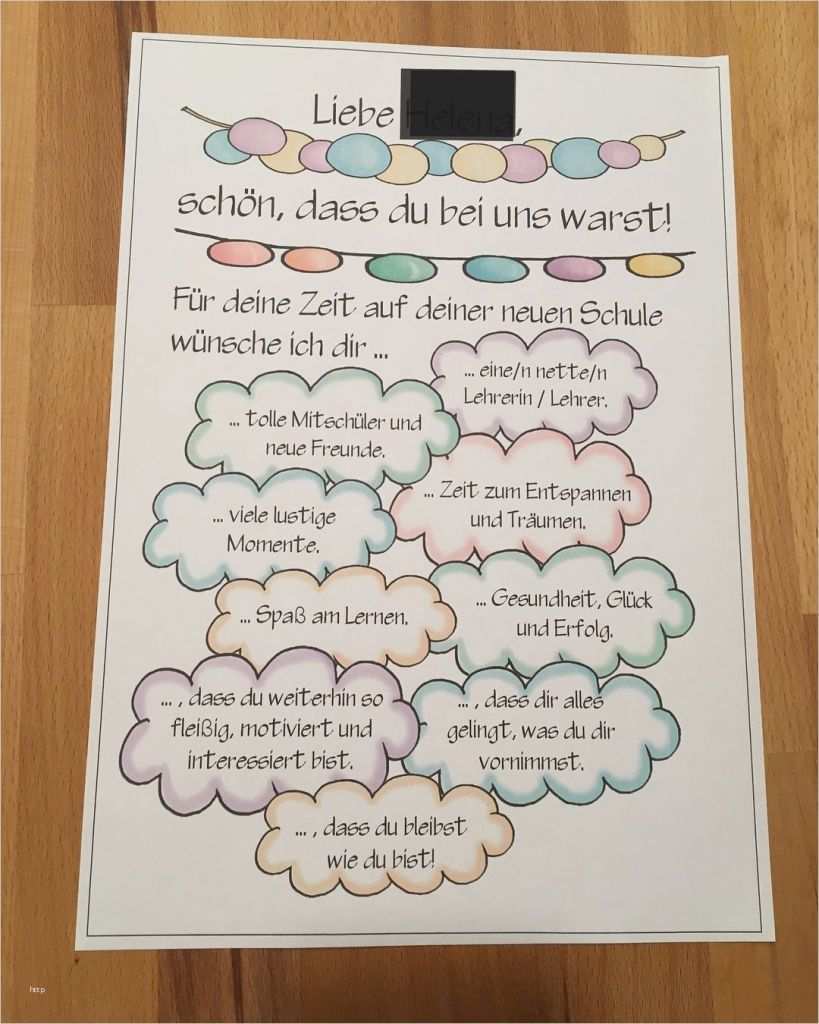 Liebe
schön, dass du bei uns warst!
Für deine Zeit auf deiner neuen Schule
wünsche ich dir ...
... eine/n nette/n
Lehrerin / Lehrer.
... tolle Mitschüler und
neue Freunde.
... Zeit zum Entspannen
und Träumen.
... viele lustige
Momente.
... Gesundheit, Glück
und Erfolg.
... Spaß am Lernen.
... , dass du weiterhin so
fleißig, motiviert und
interessiert bist.
... , dass dir alles
gelingt, was du dir
vornimmst.
... , dass du bleibst
wie du bist!